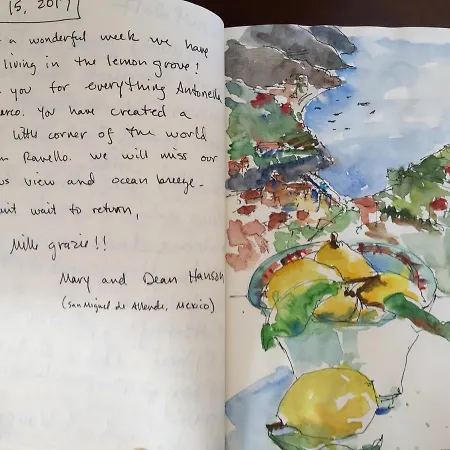 15, 2017
a wonderful week we have
living in the lemon grove!
you for everything Antonella
arco. You have created a
little corner of the world
Ravello. we will miss our
view and ocean breeze-
wait to return,
Mille grazie!!
Mary and Dean Hanson
(San Miguel de Allende, Mexico)